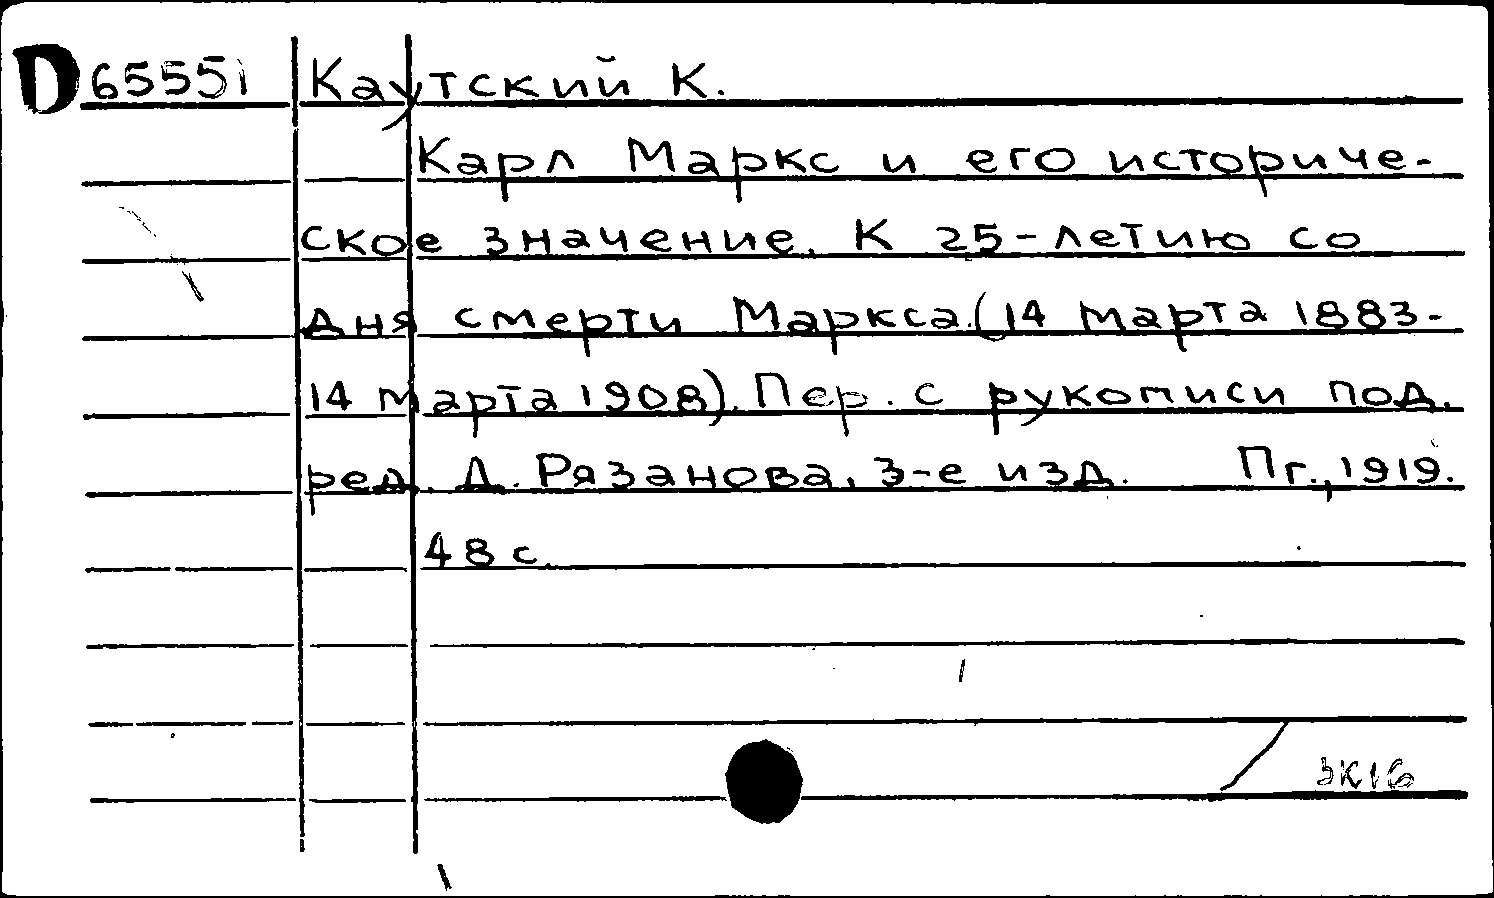 D 65551 Каутский К.
Карл Маркс и его историче-
ское значение. К 25-летию со
дня смерти Маркса.(14 марта 1883-
14 марта 1908). Пер. с рукописи под.
ред. Д. Рязанова. 3-е изд. Пг., 1919.
48 с.
3К16